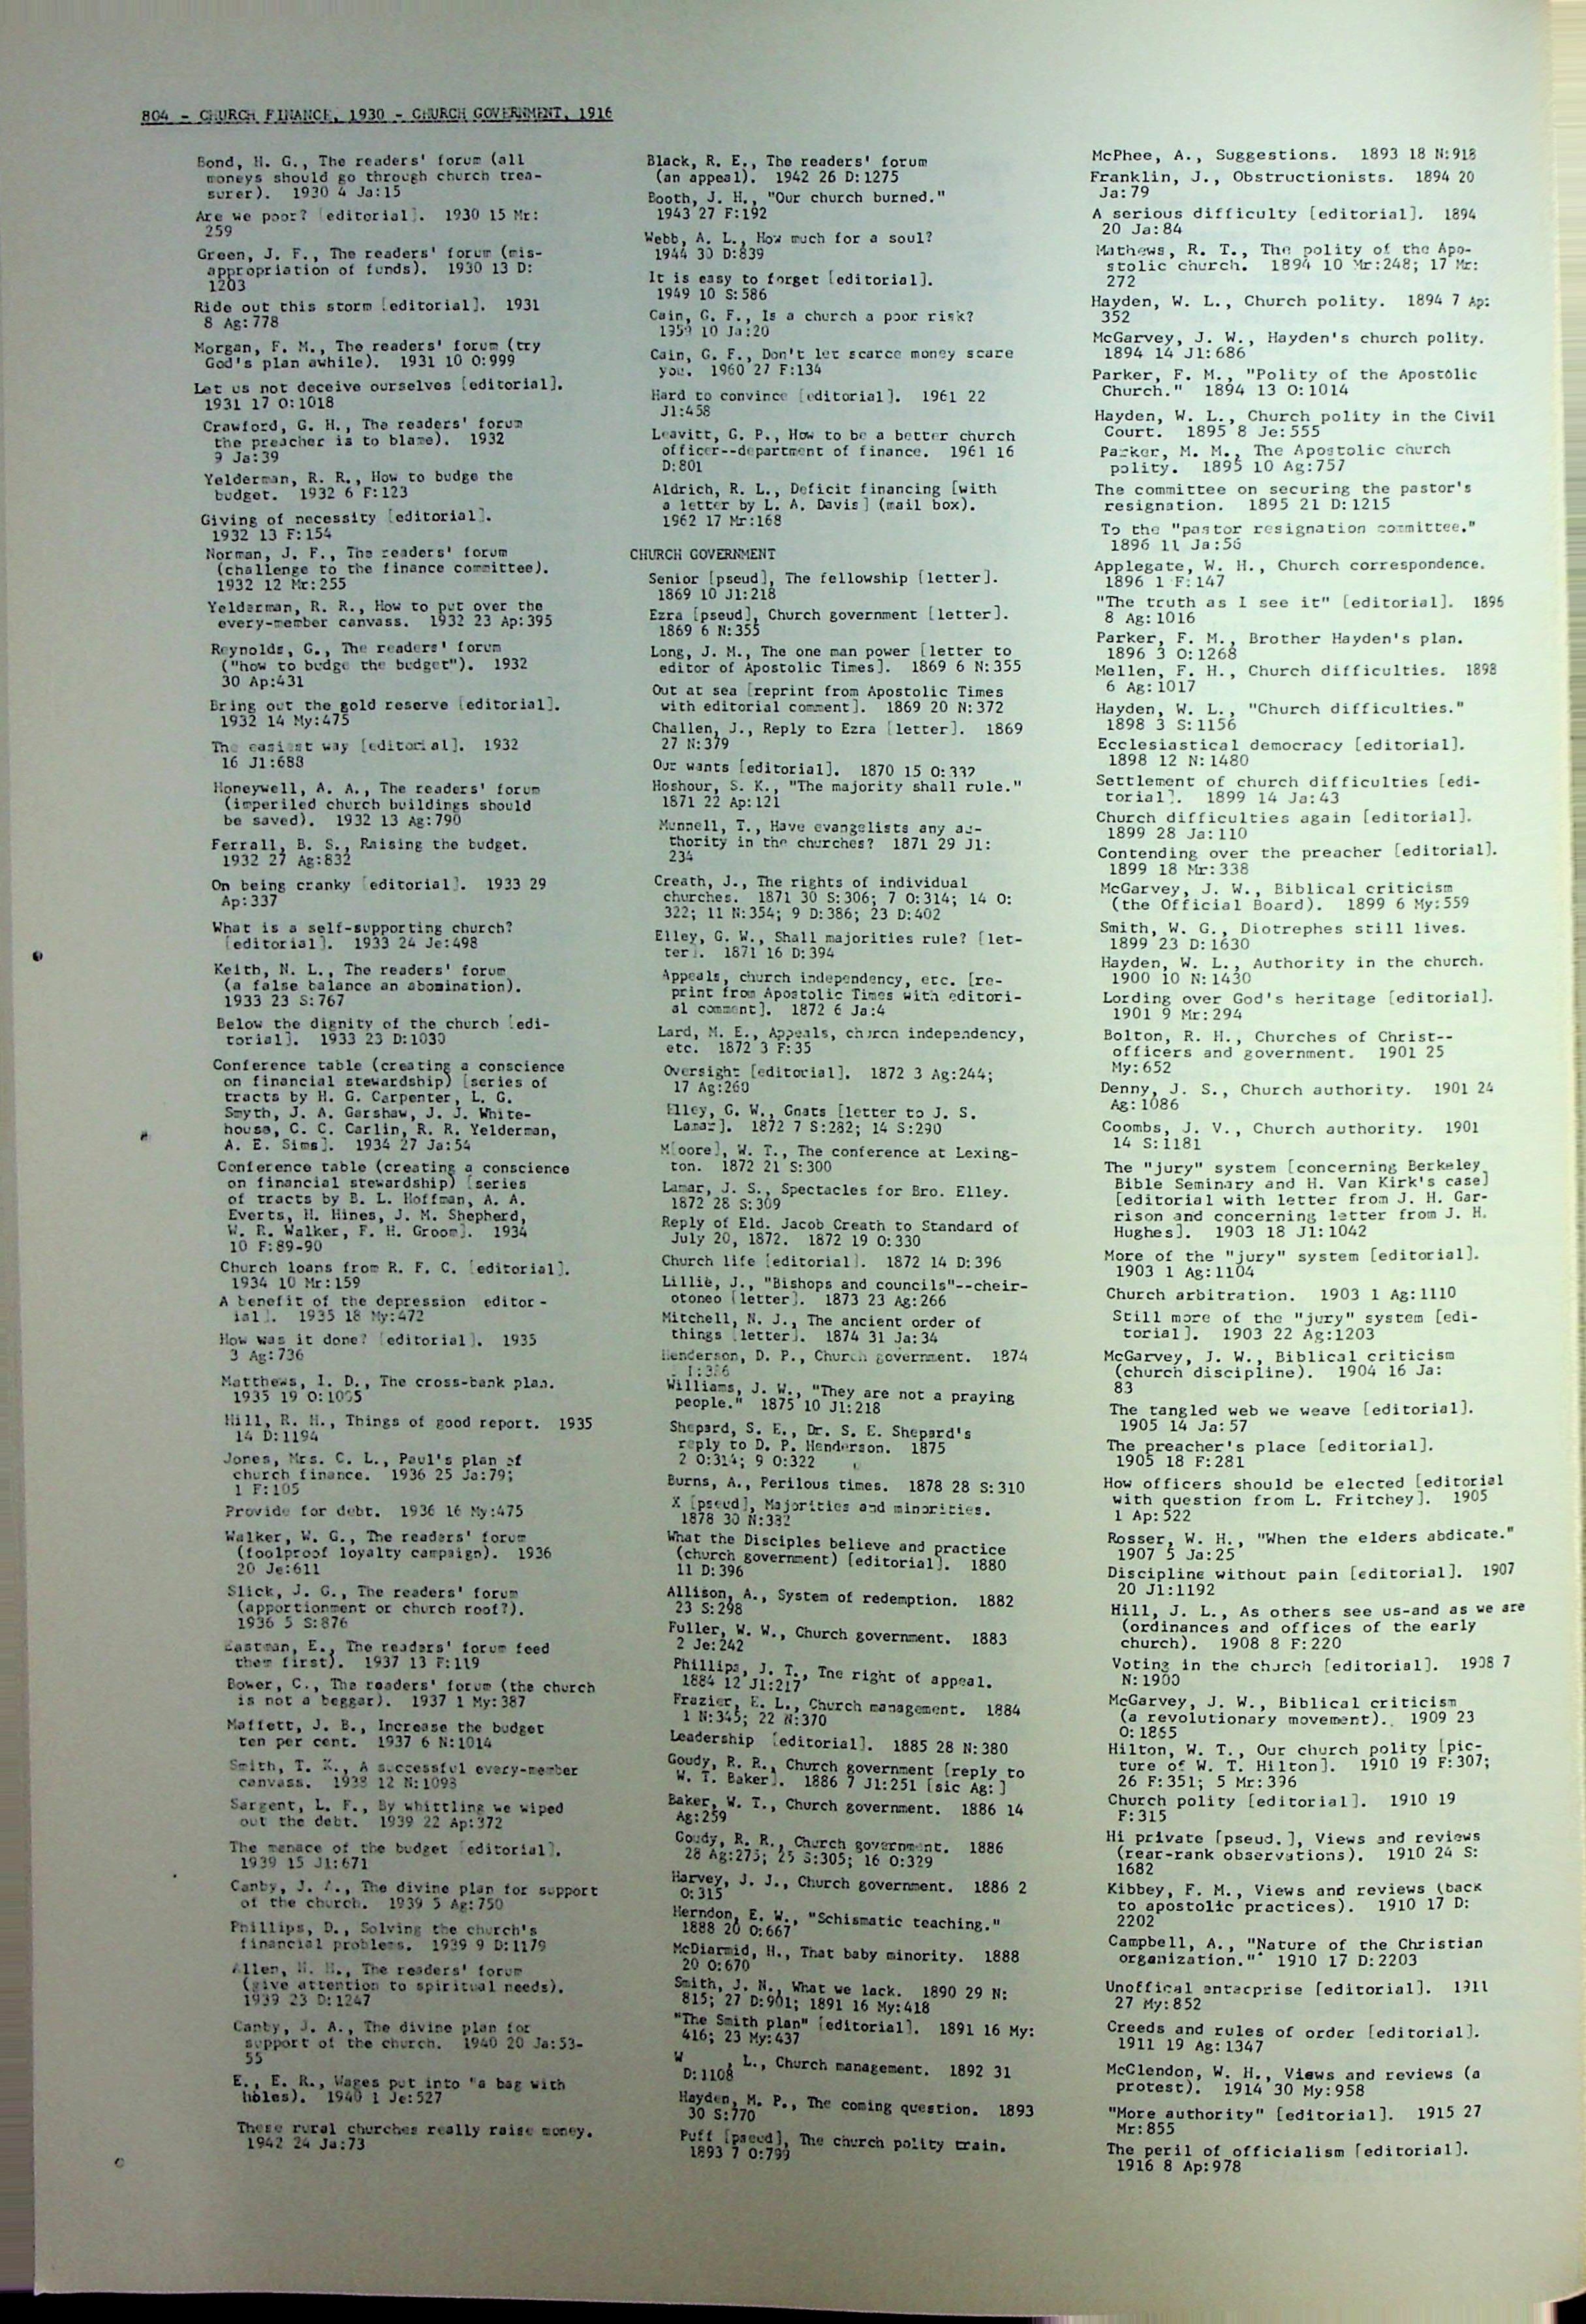 804 - CHURCH FINANCE, 1930 - CHURCH GOVERNMENT, 1916
Bond, H. G., The readers' forum (all
moneys should go through church trea-
surer). 1930 4 Ja:15
Are we poor? [editorial]. 1930 15 Mr:
259
Green, J. F., The readers' forum (mis-
appropriation of funds). 1930 13 D:
1203
Ride out this storm [editorial]. 1931
8 Ag:778
Morgan, F. M., The readers' forum (try
God's plan awhile). 1931 10 O:999
Let us not deceive ourselves [editorial].
1931 17 O:1018
Crawford, G. H., The readers' forum
the preacher is to blame). 1932
9 Ja:39
Yelderman, R. R., How to budge the
budget. 1932 6 F:123
Giving of necessity [editorial].
1932 13 F:154
Norman, J. F., The readers' forum
(challenge to the finance committee).
1932 12 Mr:255
Yelderman, R. R., How to put over the
every-member canvass. 1932 23 Ap:395
Reynolds, G., The readers' forum
("how to budge the budget"). 1932
30 Ap:431
Bring out the gold reserve [editorial].
1932 14 My:475
The easiest way [editorial]. 1932
16 Jl:688
Honeywell, A. A., The readers' forum
(imperiled church buildings should
be saved). 1932 13 Ag:790
Ferrall, B. S., Raising the budget.
1932 27 Ag:832
On being cranky [editorial]. 1933 29
Ap:337
What is a self-supporting church?
[editorial]. 1933 24 Je:498
Keith, N. L., The readers' forum
(a false balance an abomination).
1933 23 S:767
Below the dignity of the church [edi-
torial]. 1933 23 D:1030
Conference table (creating a conscience
on financial stewardship) [series of
tracts by H. G. Carpenter, L. G.
Smyth, J. A. Garshaw, J. J. White-
house, C. C. Carlin, R. R. Yelderman,
A. E. Sims]. 1934 27 Ja:54
Conference table (creating a conscience
on financial stewardship) [series
of tracts by B. L. Hoffman, A. A.
Everts, H. Hines, J. M. Shepherd,
W. R. Walker, F. H. Groom]. 1934
10 F:89-90
Church loans from R. F. C. [editorial].
1934 10 Mr:159
A benefit of the depression editor-
ial]. 1935 18 My:472
How was it done? [editorial]. 1935
3 Ag:736
Matthews, I. D., The cross-bank plan.
1935 19 O:1005
Hill, R. H., Things of good report. 1935
14 D:1194
Jones, Mrs. C. L., Paul's plan of
church finance. 1936 25 Ja:79;
1 F:105
Provide for debt. 1936 16 My:475
Walker, W. G., The readers' forum
(foolproof loyalty campaign). 1936
20 Je:611
Slick, J. G., The readers' forum
(apportionment or church roof?).
1936 5 S:876
Eastman, E., The readers' forum feed
them first). 1937 13 F:119
Bower, C., The readers' forum (the church
is not a beggar). 1937 1 My:387
Maffett, J. B., Increase the budget
ten per cent. 1937 6 N:1014
Smith, T. K., A successful every-member
canvass. 1938 12 N:1093
Sargent, L. F., By whittling we wiped
out the debt. 1939 22 Ap:372
The menace of the budget [editorial].
1939 15 Jl:671
Canby, J. A., The divine plan for support
of the church. 1939 5 Ag:750
Phillips, D., Solving the church's
financial problems. 1939 9 D:1179
Allen, H. H., The readers' forum
(give attention to spiritual needs).
1939 23 D:1247
Canby, J. A., The divine plan for
support of the church. 1940 20 Ja:53-
55
E., E. R., Wages put into "a bag with
holes). 1940 1 Je:527
These rural churches really raise money.
1942 24 Ja:73
Black, R. E., The readers' forum
(an appeal). 1942 26 D:1275
Booth, J. H., "Our church burned."
1943 27 F:192
Webb, A. L., How much for a soul?
1944 30 D:839
It is easy to forget [editorial].
1949 10 S:586
Cain, G. F., Is a church a poor risk?
1959 10 Ja:20
Cain, G. F., Don't let scarce money scare
you. 1960 27 F:134
Hard to convince [editorial]. 1961 22
Jl:458
Leavitt, G. P., How to be a better church
officer--department of finance. 1961 16
D:801
Aldrich, R. L., Deficit financing [with
a letter by L. A. Davis] (mail box).
1962 17 Mr:168
CHURCH GOVERNMENT
Senior [pseud], The fellowship [letter].
1869 10 Jl:218
Ezra [pseud], Church government [letter].
1869 6 N:355
Long, J. M., The one man power [letter to
editor of Apostolic Times]. 1869 6 N:355
Out at sea [reprint from Apostolic Times
with editorial comment]. 1869 20 N:372
Challen, J., Reply to Ezra [letter]. 1869
27 N:379
Our wants [editorial]. 1870 15 O:332
Hoshour, S. K., "The majority shall rule."
1871 22 Ap:121
Munnell, T., Have evangelists any au-
thority in the churches? 1871 29 Jl:
234
Creath, J., The rights of individual
churches. 1871 30 S:306; 7 O:314; 14 O:
322; 11 N:354; 9 D:386; 23 D:402
Elley, G. W., Shall majorities rule? [let-
ter]. 1871 16 D:394
Appeals, church independency, etc. [re-
print from Apostolic Times with editori-
al comment]. 1872 6 Ja:4
Lard, M. E., Appeals, church independency,
etc. 1872 3 F:35
Oversight [editorial]. 1872 3 Ag:244;
17 Ag:260
Elley, G. W., Gnats [letter to J. S.
Lamar]. 1872 7 S:282; 14 S:290
M[oore], W. T., The conference at Lexing-
ton. 1872 21 S:300
Lamar, J. S., Spectacles for Bro. Elley.
1872 28 S:309
Reply of Eld. Jacob Creath to Standard of
July 20, 1872. 1872 19 O:330
Church life [editorial]. 1872 14 D:396
Lillie, J., "Bishops and councils"--cheir-
otoneo [letter]. 1873 23 Ag:266
Mitchell, N. J., The ancient order of
things [letter]. 1874 31 Ja:34
Henderson, D. P., Church government. 1874
Williams, J. W., "They are not a praying
people." 1875 10 Jl:218
Shepard, S. E., Dr. S. E. Shepard's
reply to D. P. Henderson. 1875
2 O:314; 9 O:322
Burns, A., Perilous times. 1878 28 S:310
X [pseud], Majorities and minorities.
1878 30 N:382
What the Disciples believe and practice
(church government) [editorial]. 1880
11 D:396
Allison, A., System of redemption. 1882
23 S:298
Fuller, W. W., Church government. 1883
2 Je:242
Phillips, J. T., The right of appeal.
1884 12 Jl:217
Frazier, E. L., Church management. 1884
1 N:345; 22 N:370
Leadership [editorial]. 1885 28 N:380
Goudy, R. R., Church government [reply to
W. T. Baker]. 1886 7 Jl:251 [sic Ag:]
Baker, W. T., Church government. 1886 14
Ag:259
Goudy, R. R., Church government. 1886
28 Ag:275; 25 S:305; 16 O:329
Harvey, J. J., Church government. 1886 2
O:315
Herndon, E. W., "Schismatic teaching."
1888 20 O:667
McDiarmid, H., That baby minority. 1888
20 O:670
Smith, J. N., What we lack. 1890 29 N:
815; 27 D:901; 1891 16 My:418
"The Smith plan" [editorial]. 1891 16 My:
416; 23 My:437
W , L., Church management. 1892 31
D:1108
Hayden, M. P., The coming question. 1893
30 S:770
Puff [pseud], The church polity train.
1893 7 O:799
McPhee, A., Suggestions. 1893 18 N:918
Franklin, J., Obstructionists. 1894 20
Ja:79
A serious difficulty [editorial]. 1894
20 Ja:84
Mathews, R. T., The polity of the Apo-
stolic church. 1894 10 Mr:248; 17 Mr:
272
Hayden, W. L., Church polity. 1894 7 Ap:
352
McGarvey, J. W., Hayden's church polity.
1894 14 Jl:686
Parker, F. M., "Polity of the Apostolic
Church." 1894 13 O:1014
Hayden, W. L., Church polity in the Civil
Court. 1895 8 Je:555
Parker, M. M., The Apostolic church
polity. 1895 10 Ag:757
The committee on securing the pastor's
resignation. 1895 21 D:1215
To the "pastor resignation committee."
1896 11 Ja:56
Applegate, W. H., Church correspondence.
1896 1 F:147
"The truth as I see it" [editorial]. 1896
8 Ag:1016
Parker, F. M., Brother Hayden's plan.
1896 3 O:1268
Mellen, F. H., Church difficulties. 1898
6 Ag:1017
Hayden, W. L., "Church difficulties."
1898 3 S:1156
Ecclesiastical democracy [editorial].
1898 12 N:1480
Settlement of church difficulties [edi-
torial]. 1899 14 Ja:43
Church difficulties again [editorial].
1899 28 Ja:110
Contending over the preacher [editorial].
1899 18 Mr:338
McGarvey, J. W., Biblical criticism
(the Official Board). 1899 6 My:559
Smith, W. G., Diotrephes still lives.
1899 23 D:1630
Hayden, W. L., Authority in the church.
1900 10 N:1430
Lording over God's heritage [editorial].
1901 9 Mr:294
Bolton, R. H., Churches of Christ--
officers and government. 1901 25
My:652
Denny, J. S., Church authority. 1901 24
Ag:1086
Coombs, J. V., Church authority. 1901
14 S:1181
The "jury" system [concerning Berkeley
Bible Seminary and H. Van Kirk's case]
[editorial with letter from J. H. Gar-
rison and concerning letter from J. H.
Hughes]. 1903 18 Jl:1042
More of the "jury" system [editorial].
1903 1 Ag:1104
Church arbitration. 1903 1 Ag:1110
Still more of the "jury" system [edi-
torial]. 1903 22 Ag:1203
McGarvey, J. W., Biblical criticism
(church discipline). 1904 16 Ja:
83
The tangled web we weave [editorial].
1905 14 Ja:57
The preacher's place [editorial].
1905 18 F:281
How officers should be elected [editorial
with question from L. Fritchey]. 1905
1 Ap:522
Rosser, W. H., "When the elders abdicate."
1907 5 Ja:25
Discipline without pain [editorial]. 1907
20 Jl:1192
Hill, J. L., As others see us-and as we are
(ordinances and offices of the early
church). 1908 8 F:220
Voting in the church [editorial]. 1908 7
N:1900
McGarvey, J. W., Biblical criticism
(a revolutionary movement). 1909 23
O:1865
Hilton, W. T., Our church polity [pic-
ture of W. T. Hilton]. 1910 19 F:307;
26 F:351; 5 Mr:396
Church polity [editorial]. 1910 19
F:315
Hi private [pseud.], Views and reviews
(rear-rank observations). 1910 24 S:
1682
Kibbey, F. M., Views and reviews (back
to apostolic practices). 1910 17 D:
2202
Campbell, A., "Nature of the Christian
organization." 1910 17 D:2203
Unoffical enterprise [editorial]. 1911
27 My:852
Creeds and rules of order [editorial].
1911 19 Ag:1347
McClendon, W. H., Views and reviews (a
protest). 1914 30 My:958
"More authority" [editorial]. 1915 27
Mr:855
The peril of officialism [editorial].
1916 8 Ap:978